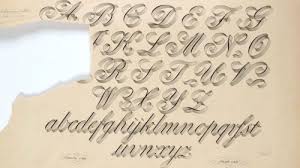 A B C D E F G
K L M N O
R S T U V
W X Y Z
abcdefghijklmnopqrſst
uvwxyz